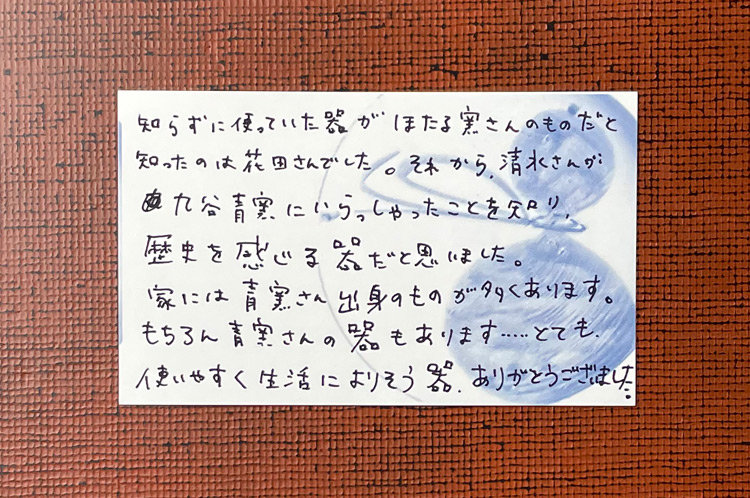 知らずに使っていた器が ほたる窯さんのものだと
知ったのは花田さんでした。それから、清水さんが
九谷青窯にいらっしゃったことを知り、
歴史を感じる器だと思いました。
家には青窯さん出身のものが多くあります。
もちろん青窯さんの器もあります……とても、
使いやすく生活によりそう器、ありがとうございました。